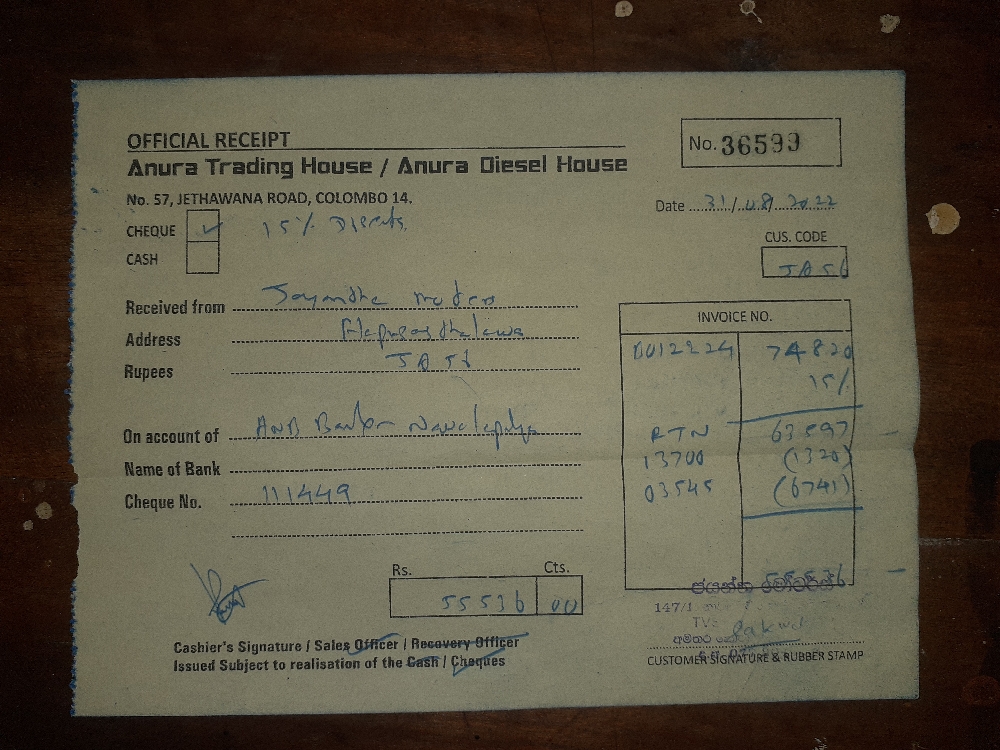 OFFICIAL RECEIPT
No. 36599
Anura Trading House / Anura Diesel House
No. 57, JETHAWANA ROAD, COLOMBO 14.
Date 31/08/2022
CHEQUE ✓ 15%
CASH
CUS. CODE
JA56
Received from Jayantha Motors
Address
Rupees JA 56
INVOICE NO.
0012224 74820
15%
RTN 63597
13700 (1320)
03545 (6741)
On account of
Name of Bank
Cheque No. 111449
Rs. Cts.
55536 00
55536
ජයන්ත මොටර්ස්
147/1
Cashier's Signature / Sales Officer / Recovery Officer
Issued Subject to realisation of the Cash / Cheques
CUSTOMER SIGNATURE & RUBBER STAMP